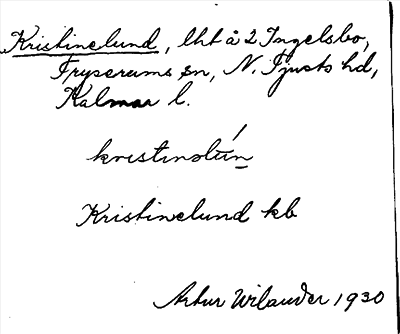 Kristinelund, lht å 2 Ingelsbo,
Fryserums sn, N. Tjusts hd,
Kalmar l.
kristinəlún
Kristinelund kb
Artur Wilander 1930